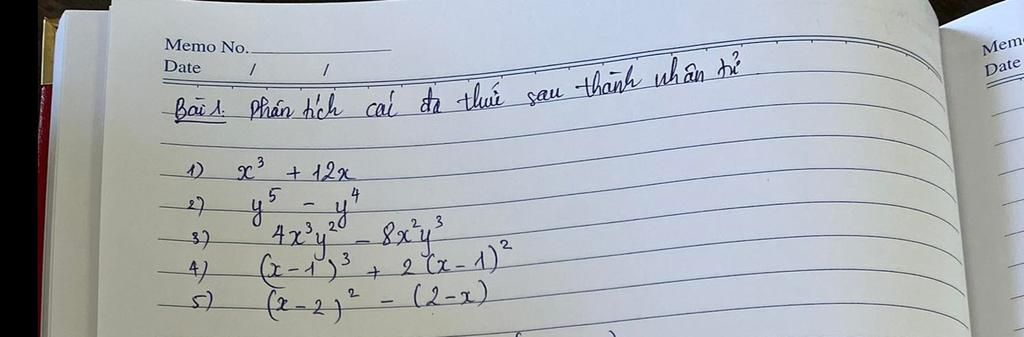 Memo No.
Date / /
Bài 1: Phân tích các đa thức sau thành nhân tử
1) x³ + 12x
2) y⁵ - y⁴
3) 4x³y² - 8x²y³
4) (x-1)³ + 2(x-1)²
5) (x-2)² - (2-x)
Mem
Date